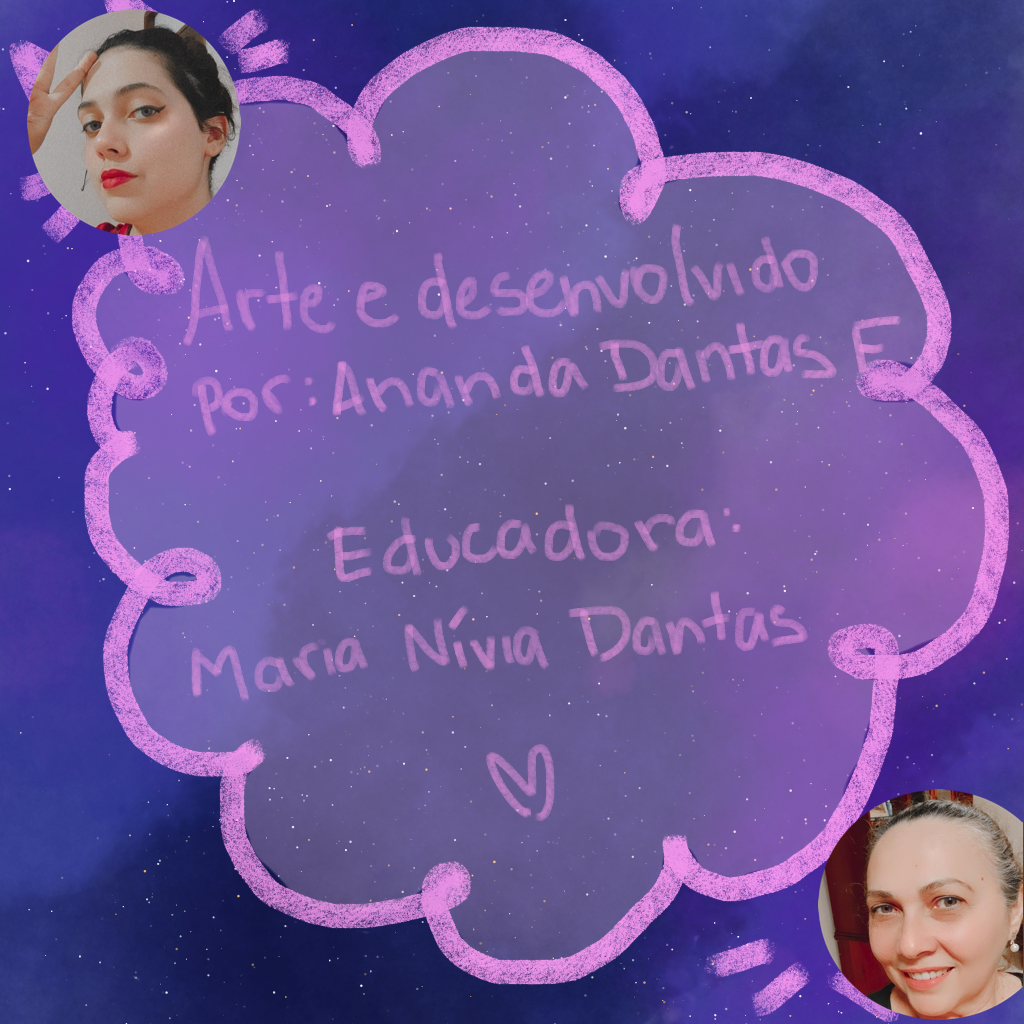 Arte e desenvolvido
por: Ananda Dantas E
Educadora:
Maria Nívia Dantas